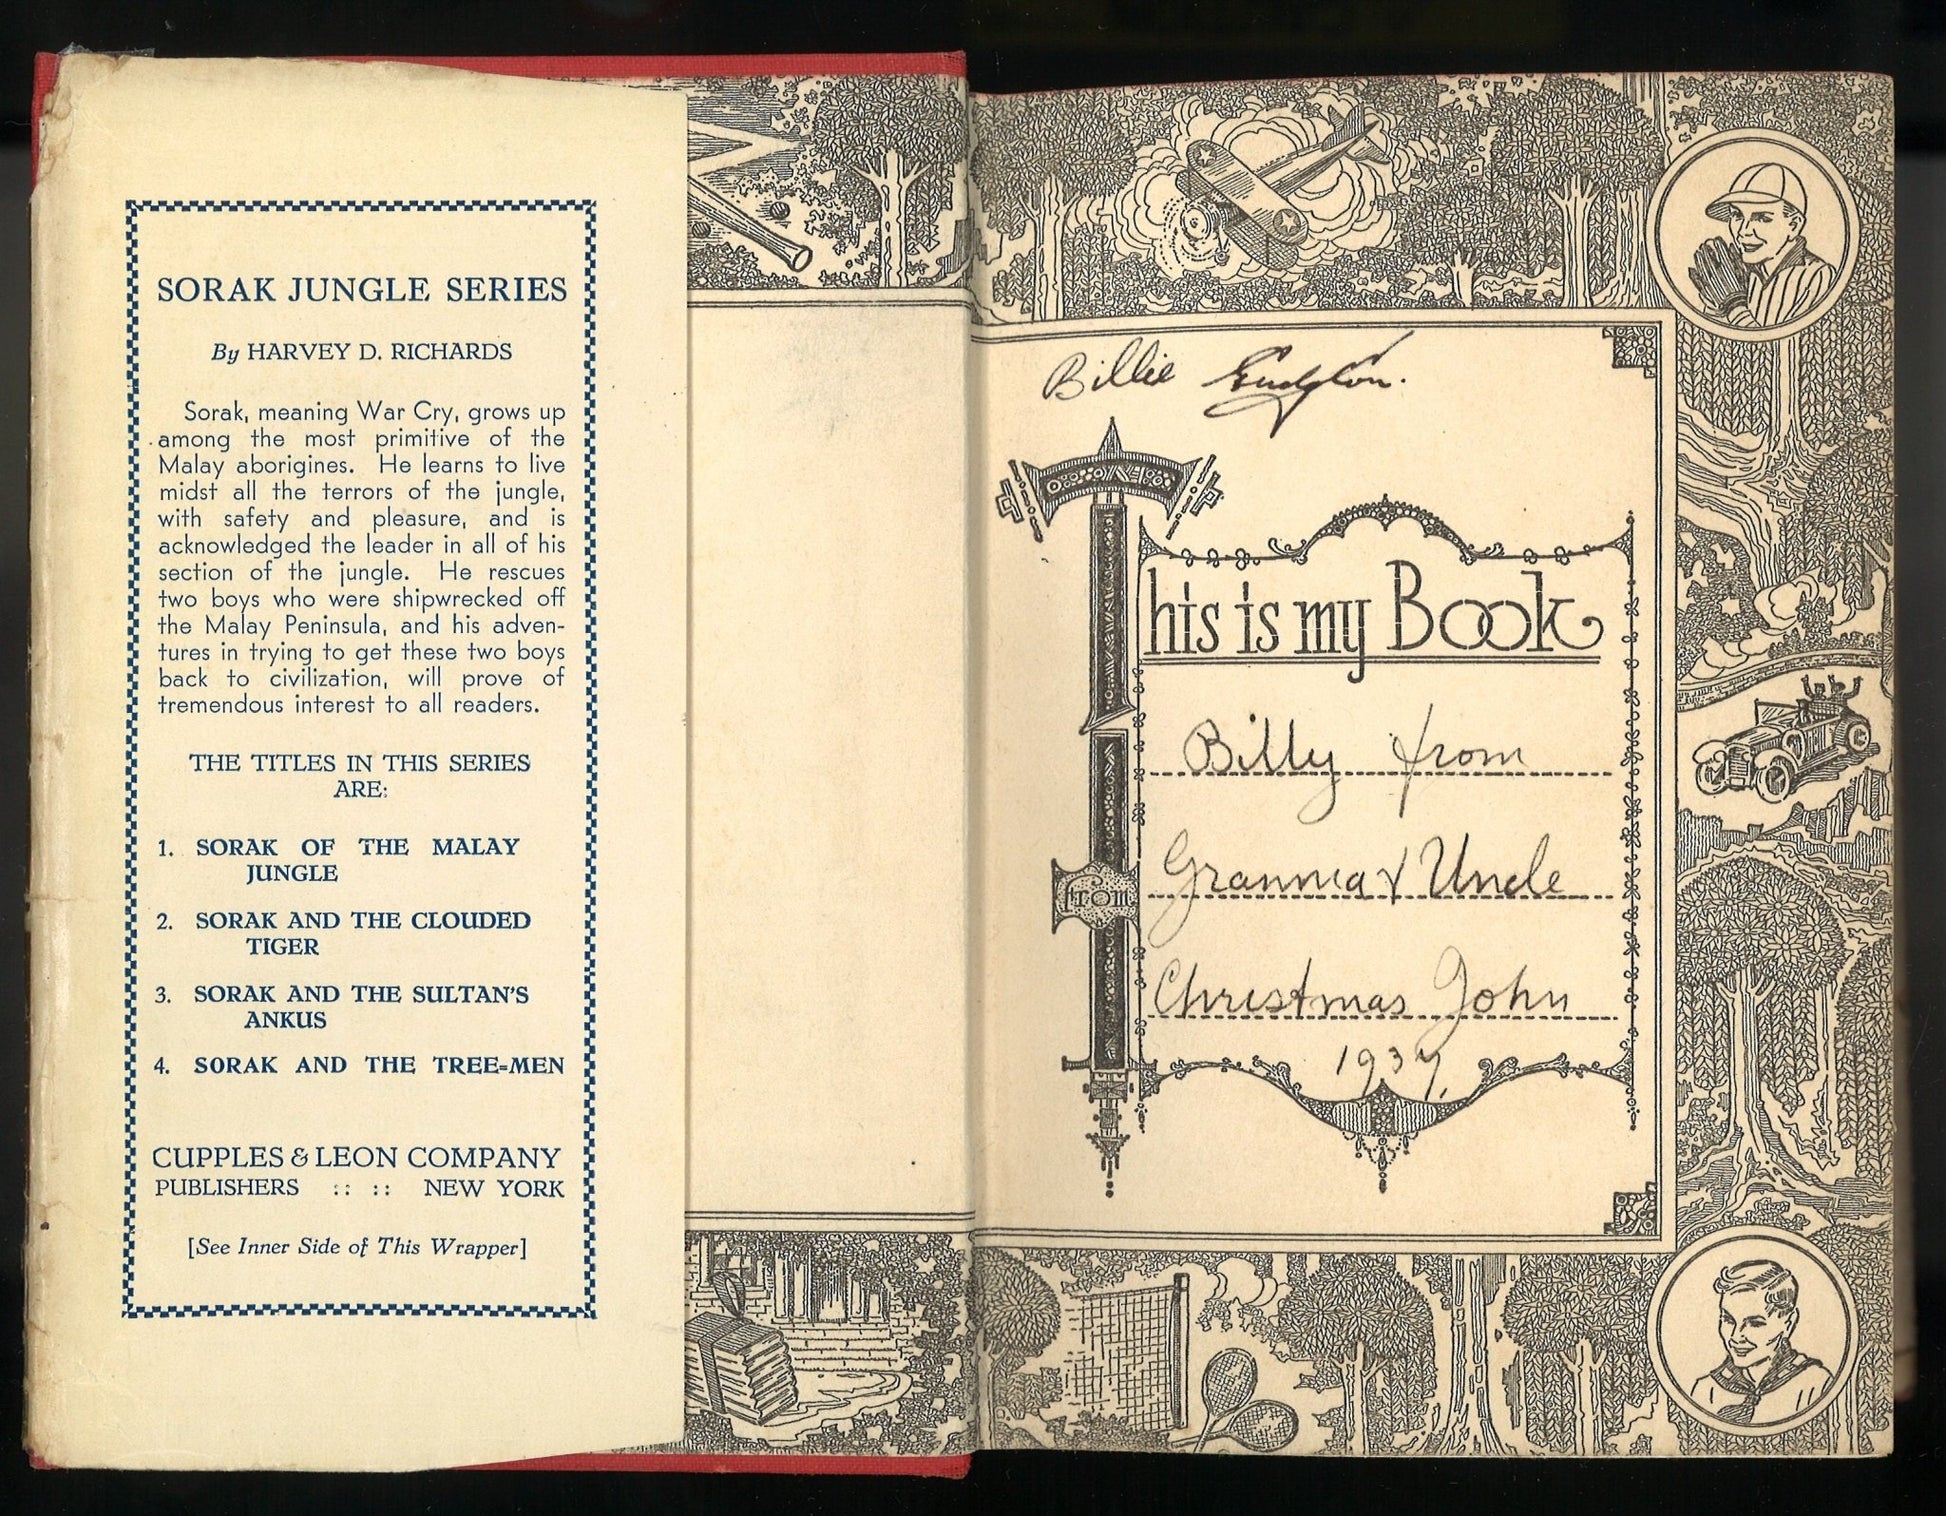 SORAK JUNGLE SERIES
By HARVEY D. RICHARDS
Sorak, meaning War Cry, grows up
among the most primitive of the
Malay aborigines. He learns to live
midst all the terrors of the jungle,
with safety and pleasure, and is
acknowledged the leader in all of his
section of the jungle. He rescues
two boys who were shipwrecked off
the Malay Peninsula, and his adven-
tures in trying to get these two boys
back to civilization, will prove of
tremendous interest to all readers.
THE TITLES IN THIS SERIES
ARE:
1. SORAK OF THE MALAY
JUNGLE
2. SORAK AND THE CLOUDED
TIGER
3. SORAK AND THE SULTAN'S
ANKUS
4. SORAK AND THE TREE-MEN
CUPPLES & LEON COMPANY
PUBLISHERS :: :: NEW YORK
[See Inner Side of This Wrapper]
Billie
This is my Book
Billy from
Grannia & Uncle
from
Christmas John
1937.